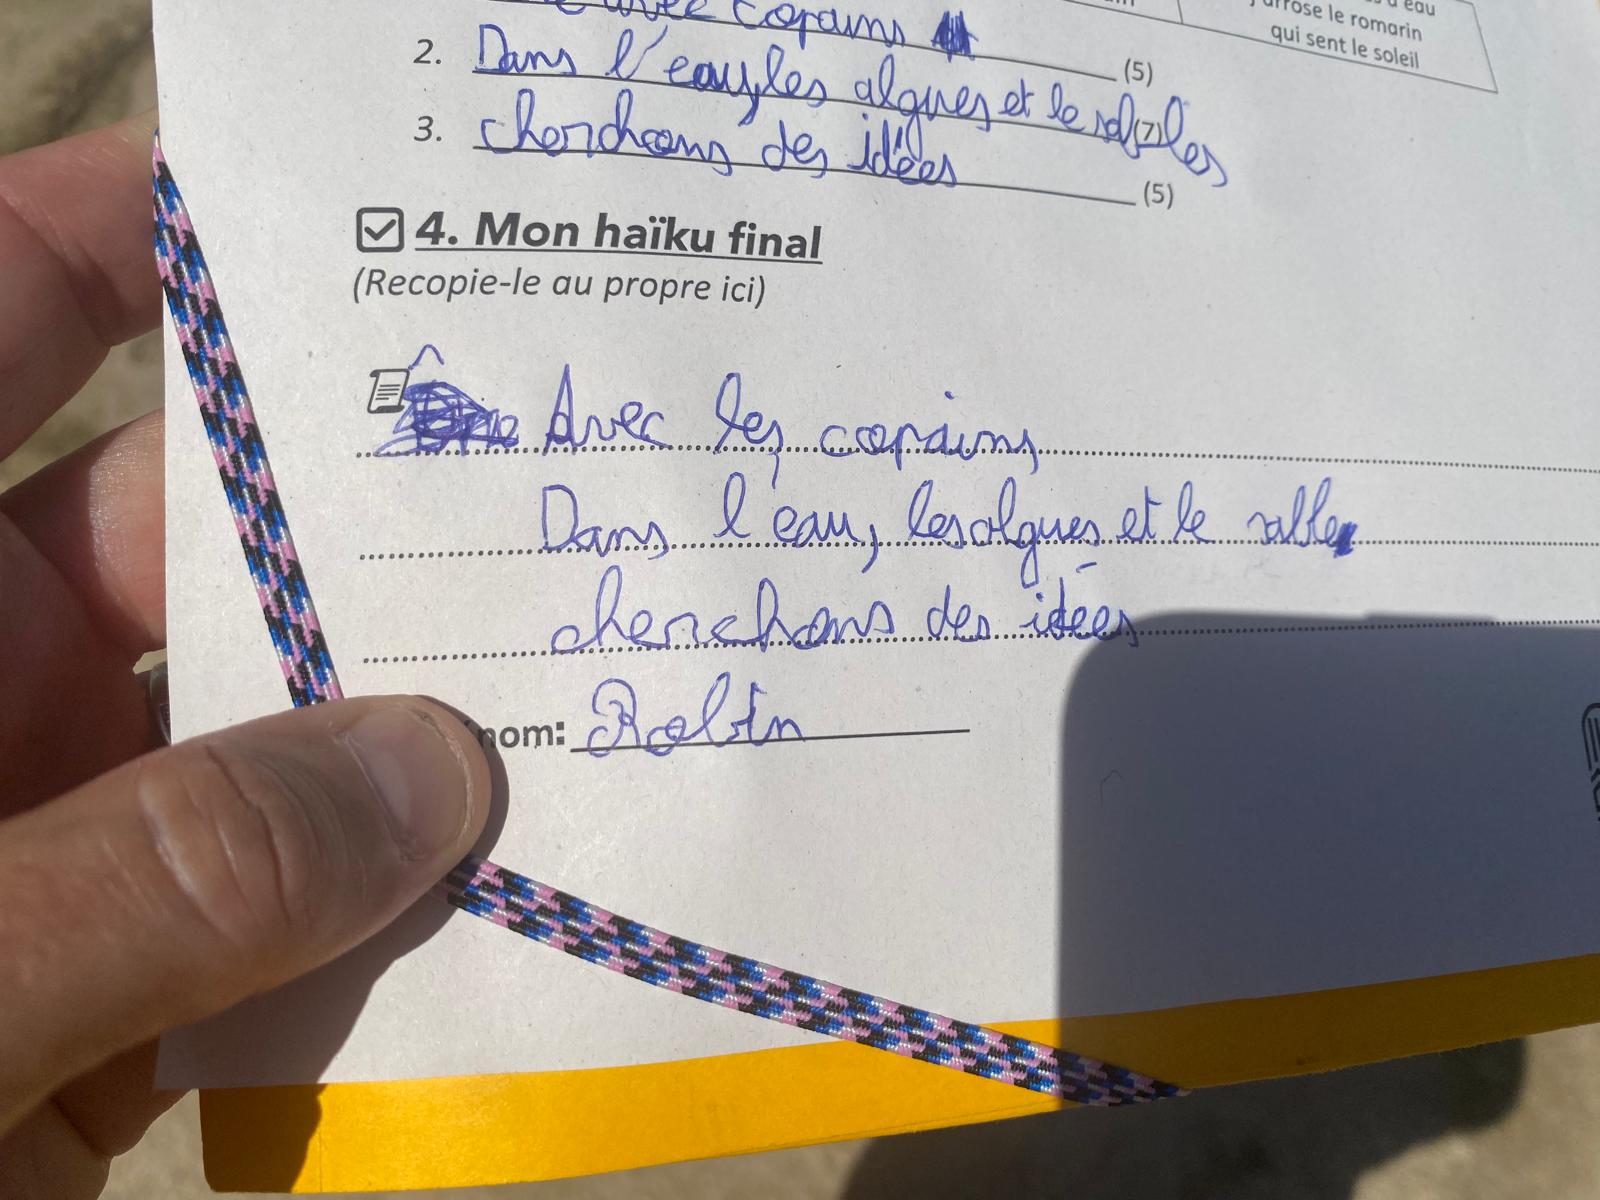 avec copains
d'eau
j'arrose le romarin
qui sent le soleil
(5)
2. Dans l'eau, les algues et le sables (7)
3. cherchons des idées (5)
4. Mon haïku final
(Recopie-le au propre ici)
Avec les copains,
Dans l'eau, les algues et le sable
cherchons des idées
nom: Robin